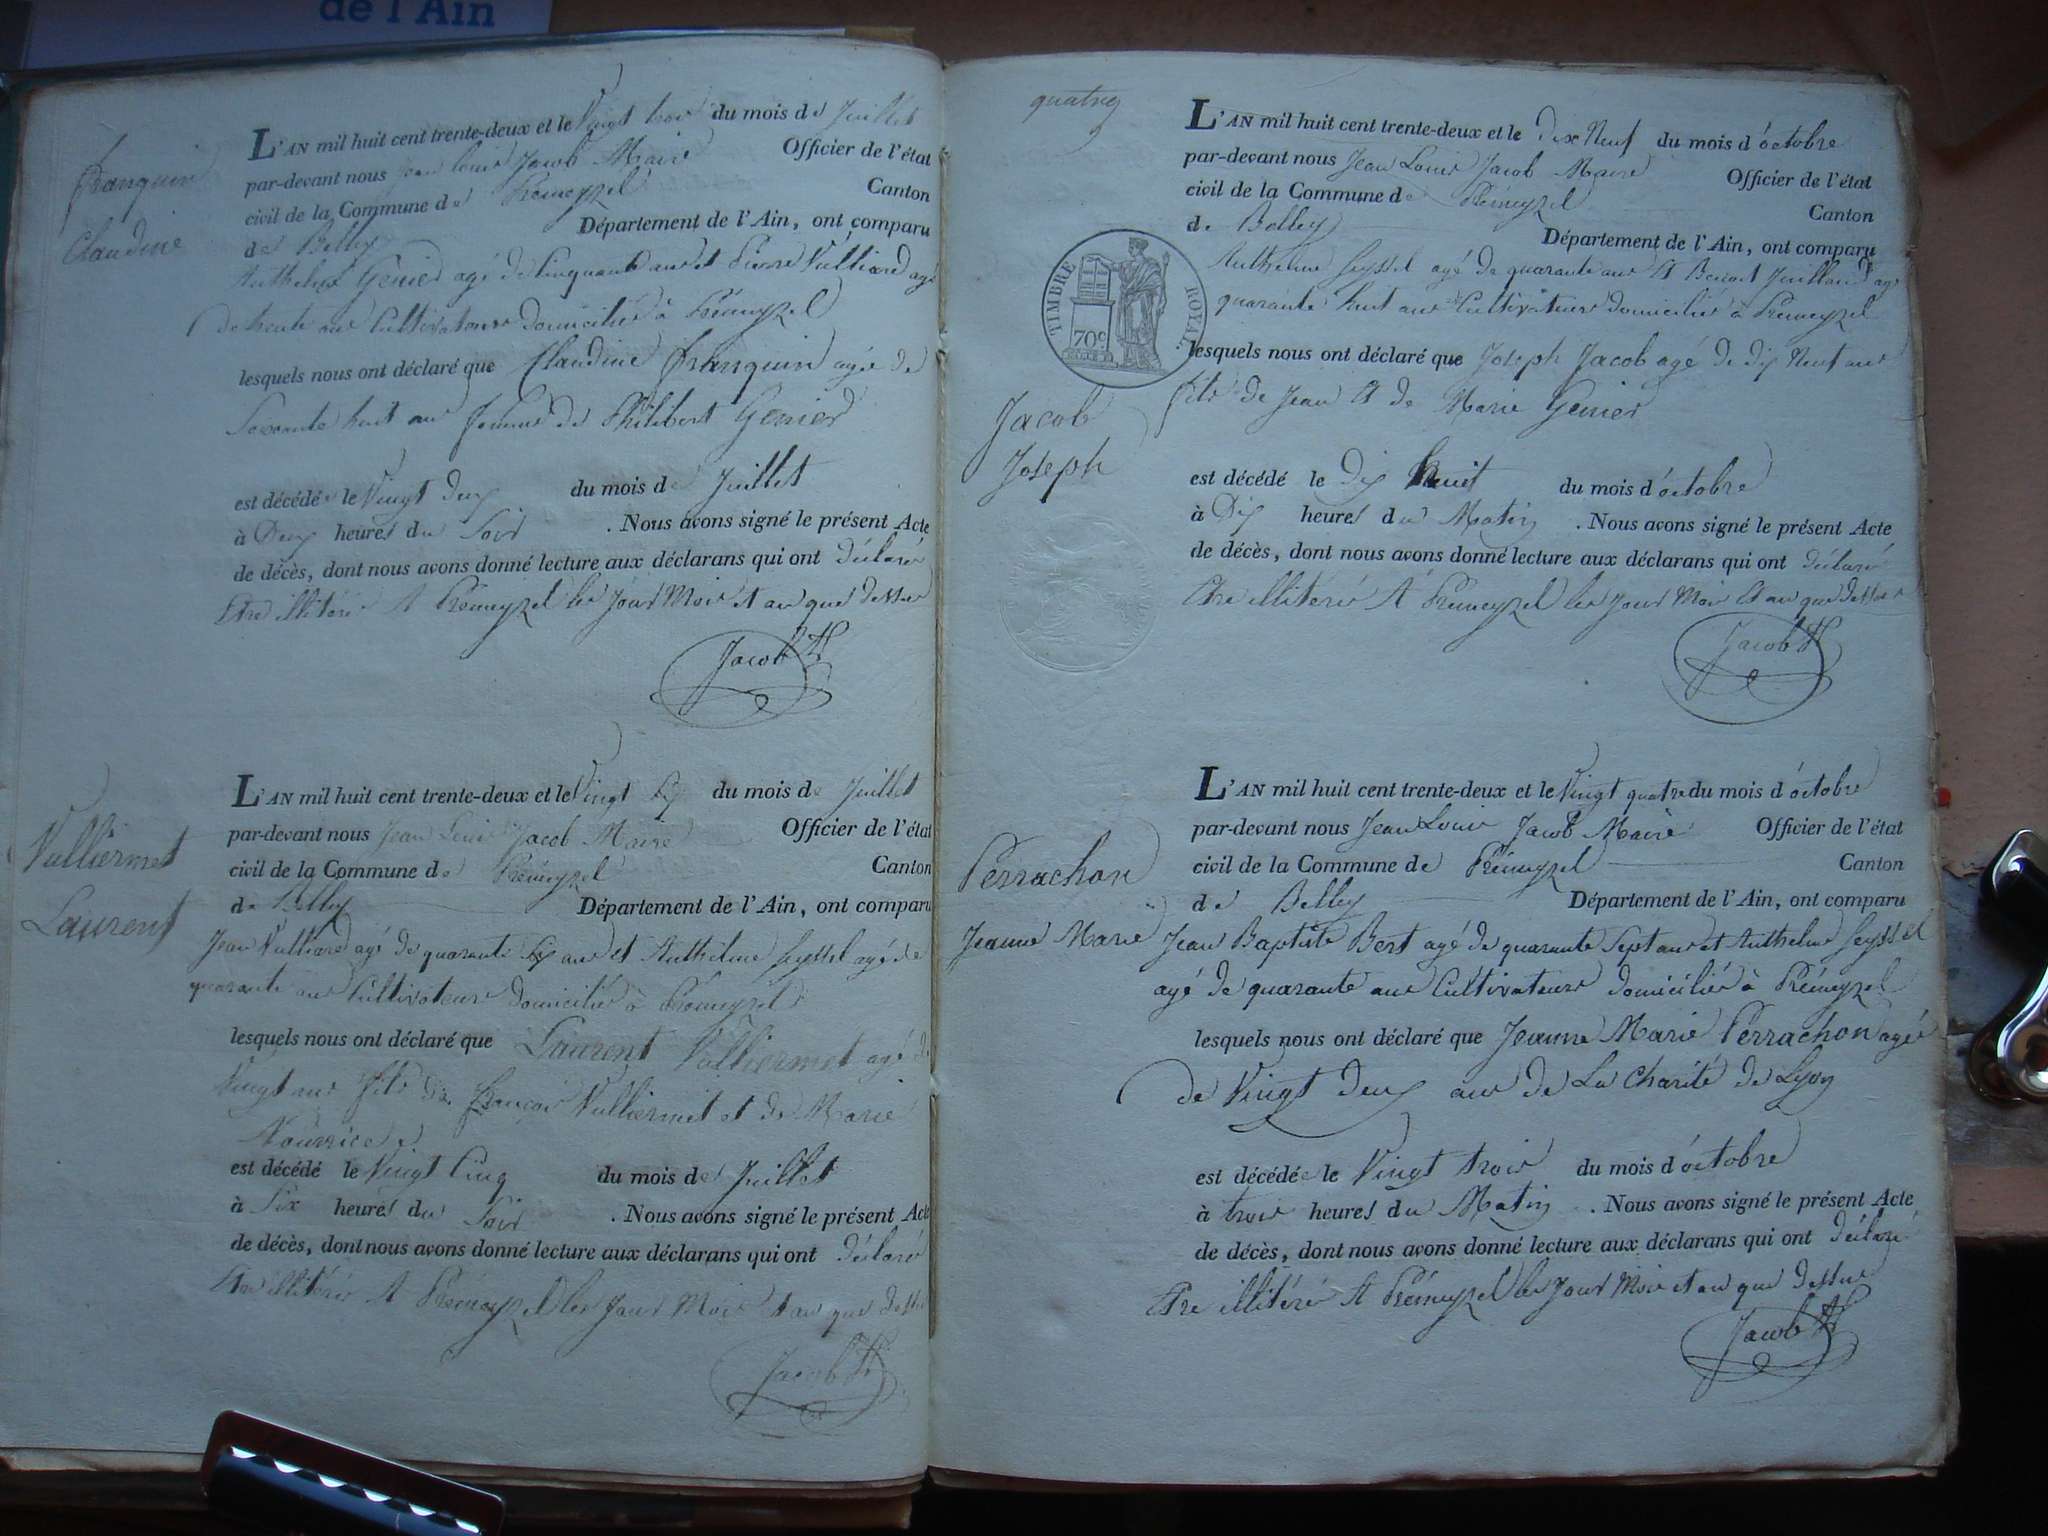 de l'Ain
Franquin
Claudine
L'AN mil huit cent trente-deux et le Vingt trois du mois de Juillet
par-devant nous Jean Louis Jacob Maire Officier de l'état
civil de la Commune de Prémeyzel Canton
de Belley Département de l'Ain, ont comparu
Anthelme Genier agé de Cinquante ans et Pierre Vulliard agé
de trente ans Cultivateurs domiciliés à Prémeyzel
lesquels nous ont déclaré que Claudine Franquin agée de
Soixante huit ans femme de Philibert Genier
est décédée le Vingt deux du mois de Juillet
à Deux heures du Soir . Nous avons signé le présent Acte
de décès, dont nous avons donné lecture aux déclarans qui ont déclaré
Etre illitérés A Prémeyzel les Jour Mois et an que dessus
Jacob
Vulliermet
Laurent
L'AN mil huit cent trente-deux et le Vingt Six du mois de Juillet
par-devant nous Jean Louis Jacob Maire Officier de l'état
civil de la Commune de Prémeyzel Canton
de Belley Département de l'Ain, ont comparu
Jean Vulliard agé de quarante Six ans et Anthelme Seyssel agé de
quarante ans Cultivateurs domiciliés à Prémeyzel
lesquels nous ont déclaré que Laurent Vulliermet agé de
Vingt ans fils de François Vulliermet et de Marie
Nourrice
est décédé le Vingt Cinq du mois de Juillet
à Six heures du Soir . Nous avons signé le présent Acte
de décès, dont nous avons donné lecture aux déclarans qui ont déclaré
Etre illitérés A Prémeyzel les Jour Mois et an que dessus
Jacob
quatre
L'AN mil huit cent trente-deux et le dix Neuf du mois d'octobre
par-devant nous Jean Louis Jacob Maire Officier de l'état
civil de la Commune de Prémeyzel Canton
de Belley Département de l'Ain, ont comparu
Anthelme Seyssel agé de quarante ans et Benoit Juilland agé
quarante huit ans Cultivateurs domiciliés à Prémeyzel
TIMBRE ROYAL
70c
lesquels nous ont déclaré que Joseph Jacob agé de dix Neuf ans
fils de Jean et de Marie Genier
Jacob
Joseph
est décédé le Dix huit du mois d'octobre
à Dix heures du Matin . Nous avons signé le présent Acte
de décès, dont nous avons donné lecture aux déclarans qui ont déclaré
Etre illitérés A Prémeyzel les Jour Mois et an que dessus
Jacob
L'AN mil huit cent trente-deux et le Vingt quatre du mois d'octobre
par-devant nous Jean Louis Jacob Maire Officier de l'état
civil de la Commune de Prémeyzel Canton
de Belley Département de l'Ain, ont comparu
Perrachon
Jeanne Marie
Jean Baptiste Bert agé de quarante Sept ans et Anthelme Seyssel
agé de quarante ans Cultivateurs domiciliés à Prémeyzel
lesquels nous ont déclaré que Jeanne Marie Perrachon agée
de Vingt deux ans de La Charité de Lyon
est décédée le Vingt trois du mois d'octobre
à trois heures du Matin . Nous avons signé le présent Acte
de décès, dont nous avons donné lecture aux déclarans qui ont déclaré
Etre illitérés A Prémeyzel les Jour Mois et an que dessus
Jacob